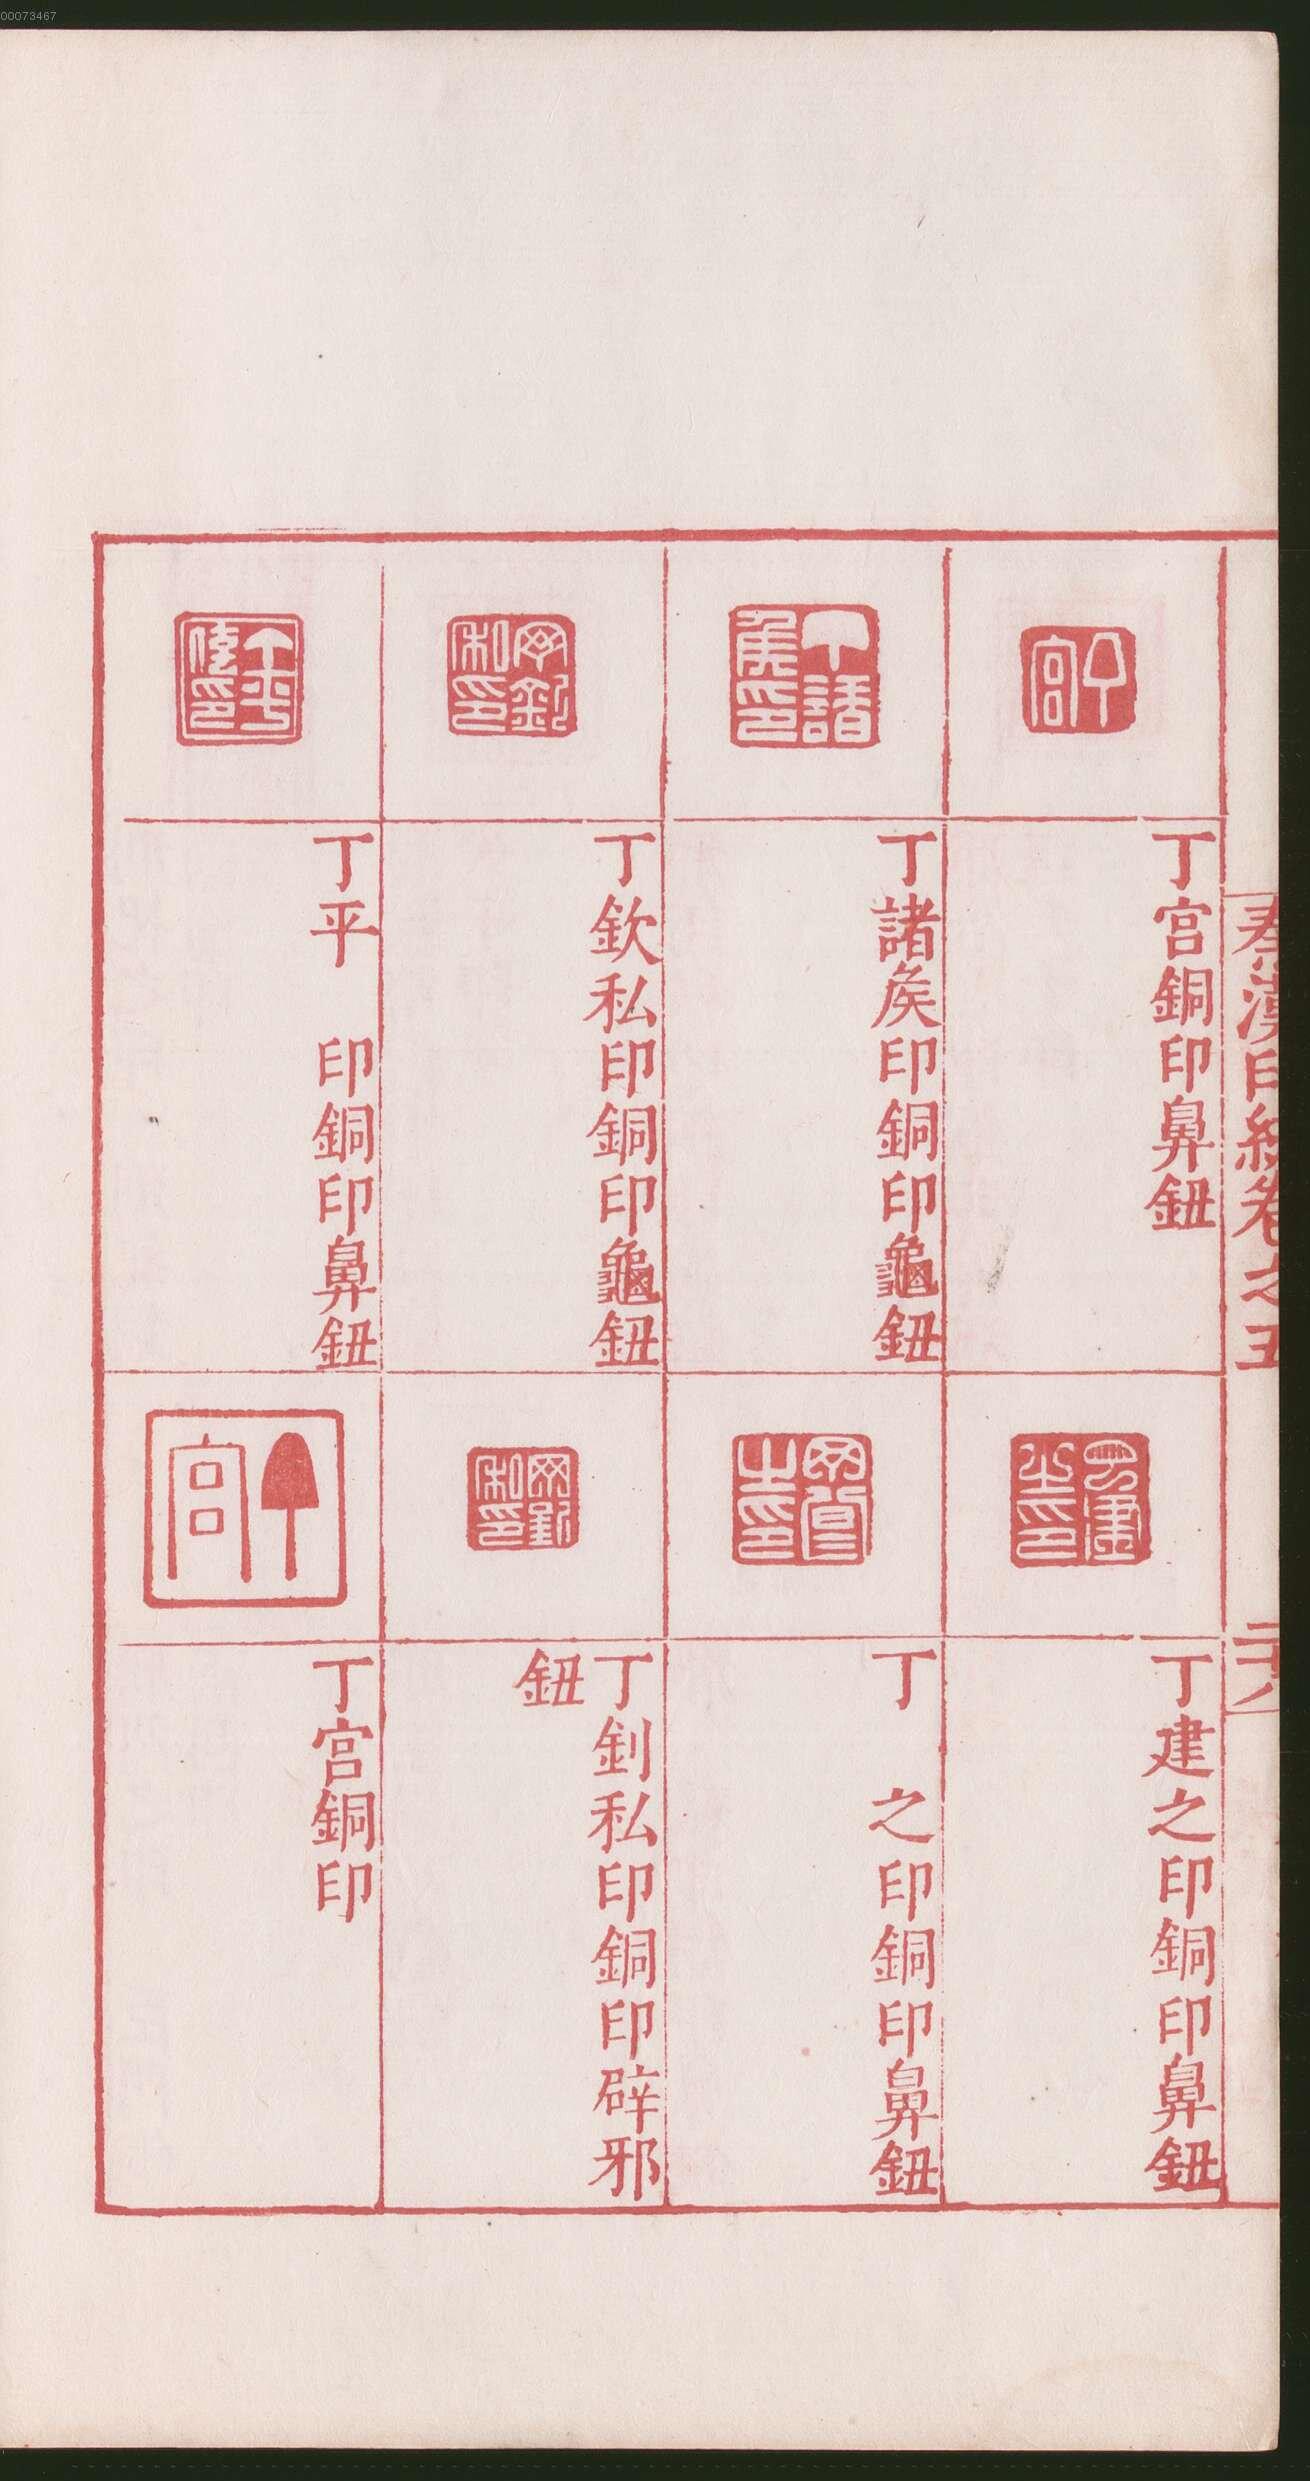 00073467
秦漢印統卷之五
二十八
丁宮銅印鼻鈕
丁諸矦印銅印龜鈕
丁欽私印銅印龜鈕
丁平　印銅印鼻鈕
丁建之印銅印鼻鈕
丁　之印銅印鼻鈕
丁釗私印銅印辟邪
鈕
丁宮銅印